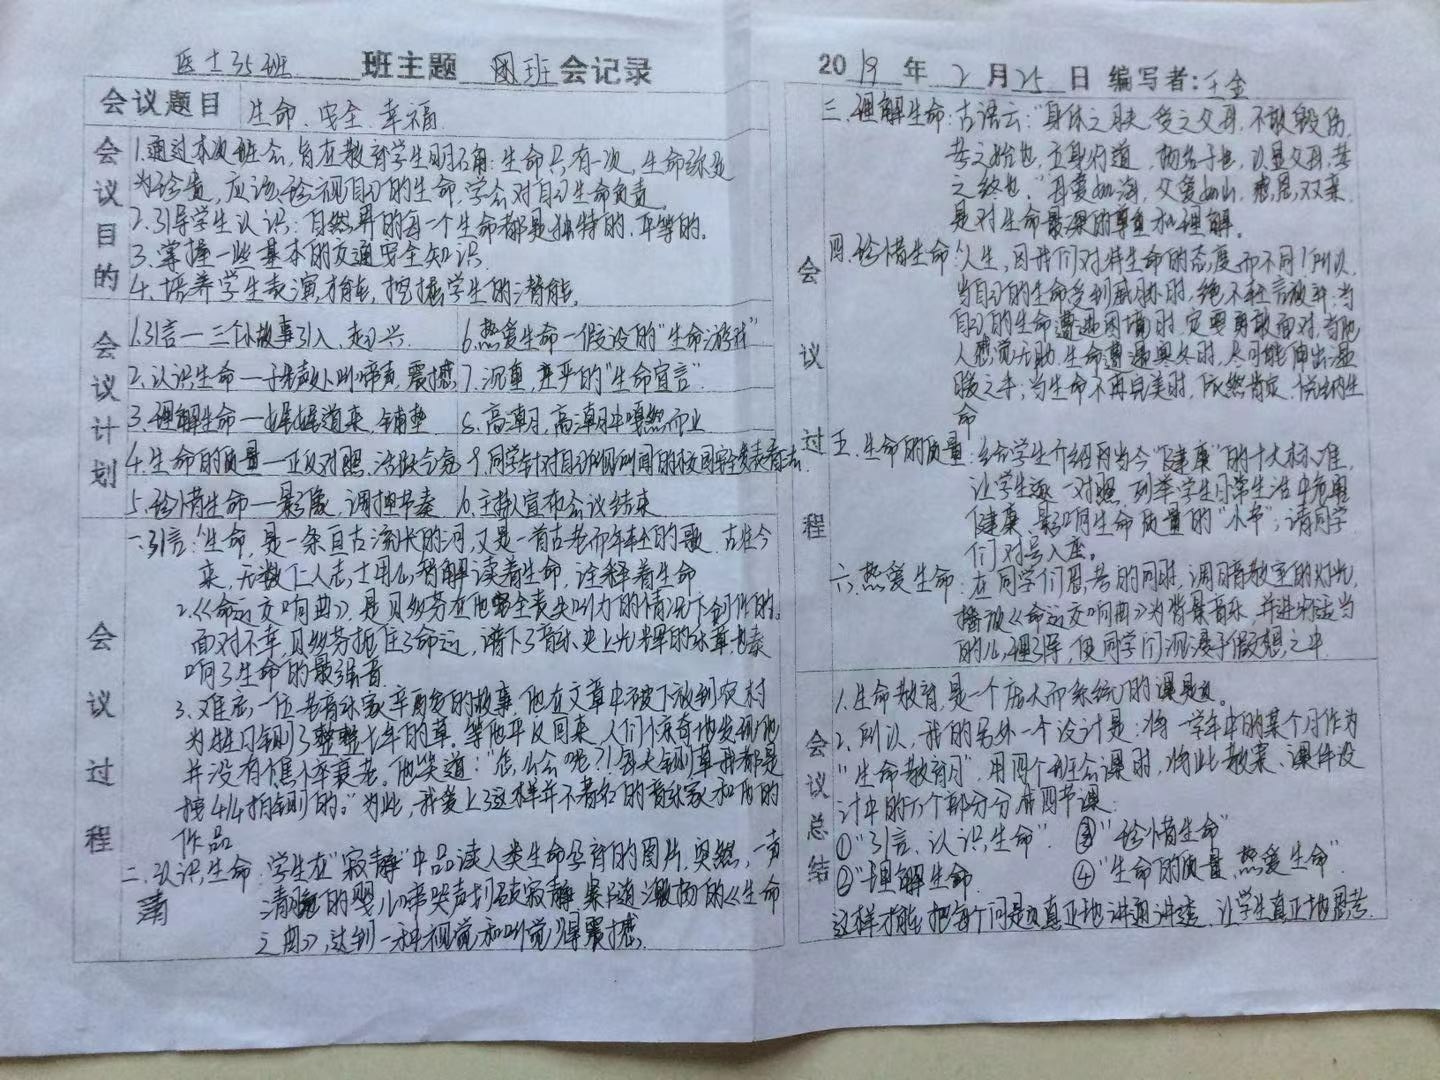 医士35班 班主题 团班 会记录
会议题目 生命 安全 幸福
会议目的
1.通过本次班会,旨在教育学生明确:生命只有一次,生命弥足
为珍贵,应该珍视自己的生命,学会对自己生命负责。
2.引导学生认识:自然界的每一个生命都是独特的,平等的。
3.掌握一些基本的交通安全知识
4.培养学生表演才能,挖掘学生的潜能。
会议计划
1.引言—三个小故事引入,起兴.
2.认识生命—子声处叫啼声,震撼
3.理解生命—娓娓道来,铺垫
4.生命的质量—正反对照,活跃气氛
5.珍惜生命—景像,调押节奏
6.热爱生命—假设的"生命游戏"
7.沉重,庄严的"生命宣言"
8.高潮,高潮中嘎然而止
9.同学针对自己所见所闻的校园安全发表看法.
6.主持人宣布会议结束
会议过程
一.引言:1.生命,是一条亘古流长的河,又是一首古老而年轻的歌.古往今
来,无数仁人志士用心智解读着生命,诠释着生命
2.《命运交响曲》,是贝多芬在他完全丧失听力的情况下创作的。
面对不幸,贝多芬扼住了命运,谱下了音乐史上光辉的乐章,也奏
响了生命的最强音
3.难忘,一位老音乐家辛勤多的故事,他在文章中被下放到农村
为牲口铡了整整七年的草。等他平反回来,人们惊奇地发现他
并没有憔悴衰老。他笑道:"怎么会呢?!每天铡草我都是
按4/4拍铡的。"为此,我爱上了这样并不著名的音乐家和他的
作品
二.认识生命:学生在"寂静"中品读人类生命孕育的图片,突然,一声
清脆的婴儿啼哭声划破寂静,紧随激扬的《生命
之曲》,达到一种视觉和听觉得震撼。
2019年2月25日 编写者:王金
会议过程
三.理解生命:古语云:"身体之肤,受之父母,不敢毁伤,
孝之始也,立身行道,扬名于世,以显父母,孝
之终也。"母爱如海,父爱如山,感恩双亲
是对生命最深的尊重和理解。
四.珍惜生命:"人生,因我们对待生命的态度而不同!"所以
当自己的生命受到威胁时,绝不轻言放弃;当
自己的生命遭遇困境时,定要勇敢面对;当他
人感觉无助,生命遭遇凶险时,尽可能伸出温
暖之手;当生命不再完美时,依然肯定,悦纳生
命
五.生命的质量:给学生介绍当今"健康"的十大标准,
让学生逐一对照,列举学生日常生活中危害
健康,影响生命质量的"小节",请同学
们对号入座。
六.热爱生命:在同学们思考的同时,调暗教室的灯光,
播放《命运交响曲》为背景音乐,并进行适当
的心理引导,使同学们沉浸于假想之中
会议总结
1.生命教育是一个庞大而系统的课题。
2.所以,我的另外一个设计是:将一学年中的某个月作为
"生命教育月",用四个班会课时,将此教案、课件设
计中的六个部分分作四节课:
①"引言、认识生命" ③"珍惜生命"
②"理解生命 ④"生命的质量,热爱生命"
这样才能把每个问题真正地讲通讲透,让学生真正地思考.